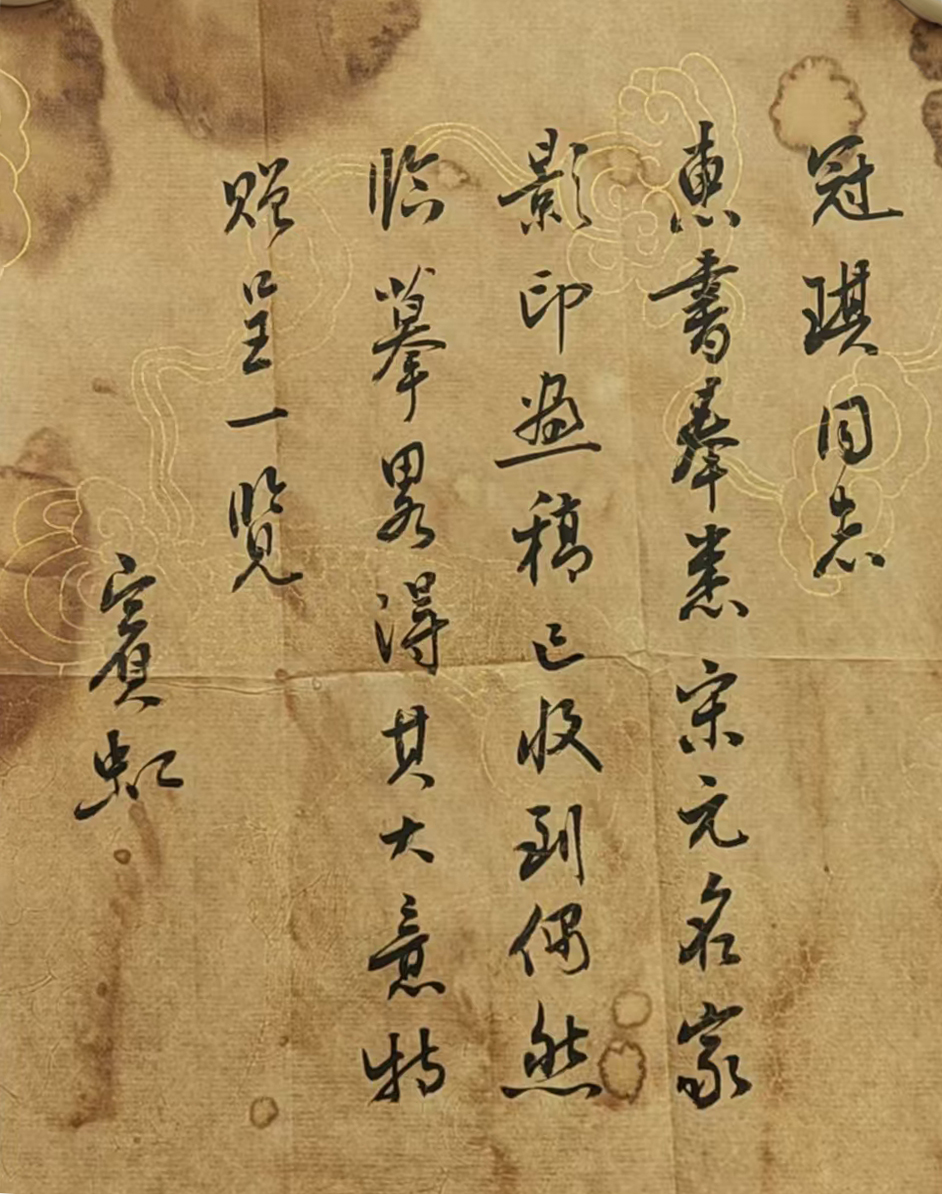 冠琪同志
惠書奉悉宋元名家
影印畫稿已收到偶然
臨摹畧得其大意特
贈呈一覽
賓虹